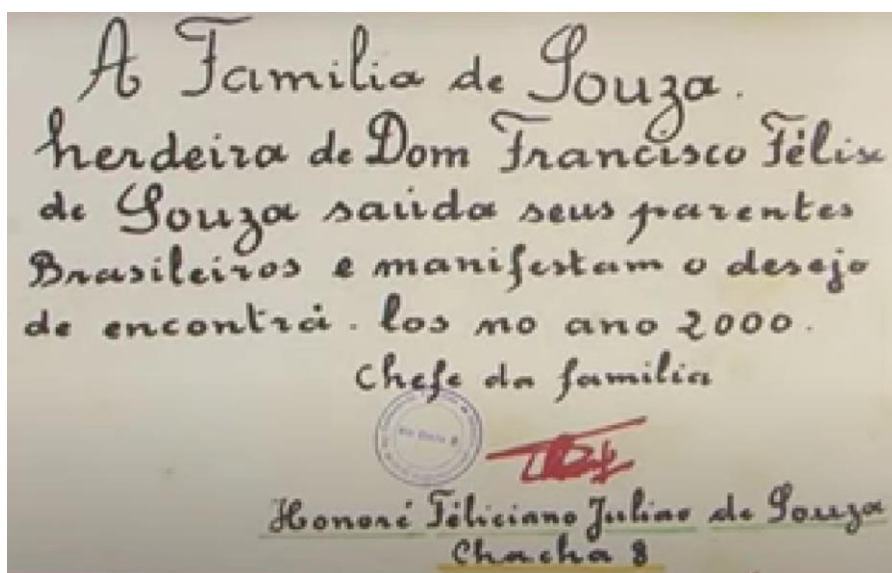 A Familia de Souza.
herdeira de Dom Francisco Félix
de Souza saúda seus parentes
Brasileiros e manifestam o desejo
de encontrá-los no ano 2000.
Chefe da familia
Honoré Féliciano Juliao de Souza
Chacha 8